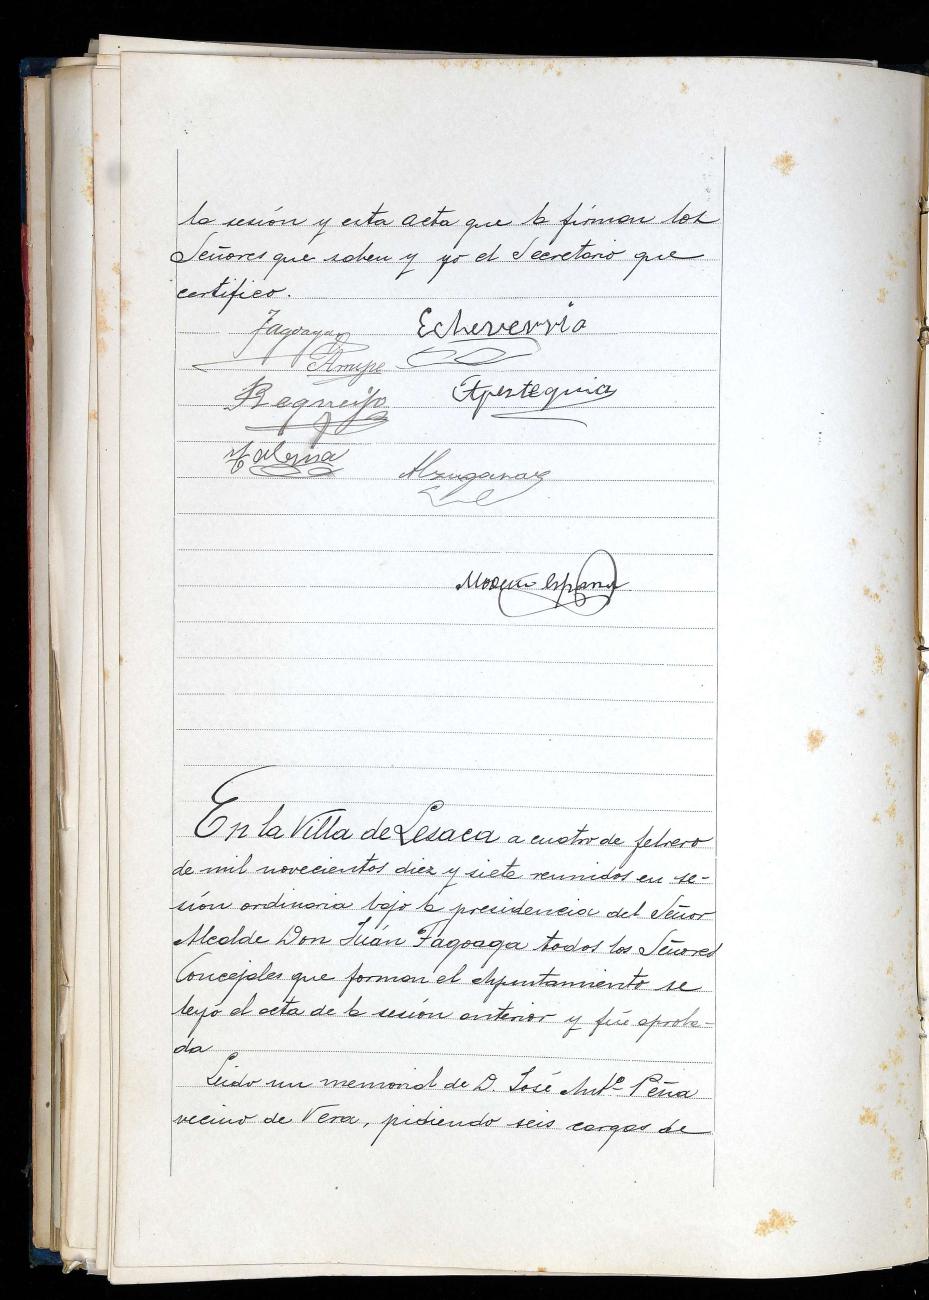 la sesión y esta acta que la firman los
Señores que saben y yo el Secretario que
certifico.
Fagoaga Echeverria
Arrupe
Apesteguia
Alzugaray
España
En la Villa de Lesaca a cuatro de febrero
de mil novecientos diez y siete reunidos en se-
sión ordinaria bajo la presidencia del Señor
Alcalde Don Juán Fagoaga todos los Señores
Concejales que forman el Ayuntamiento se
leyó el acta de la sesión anterior y fué aproba-
da
Leido un memorial de D. José Antº Peña
vecino de Vera, pidiendo seis cargas de